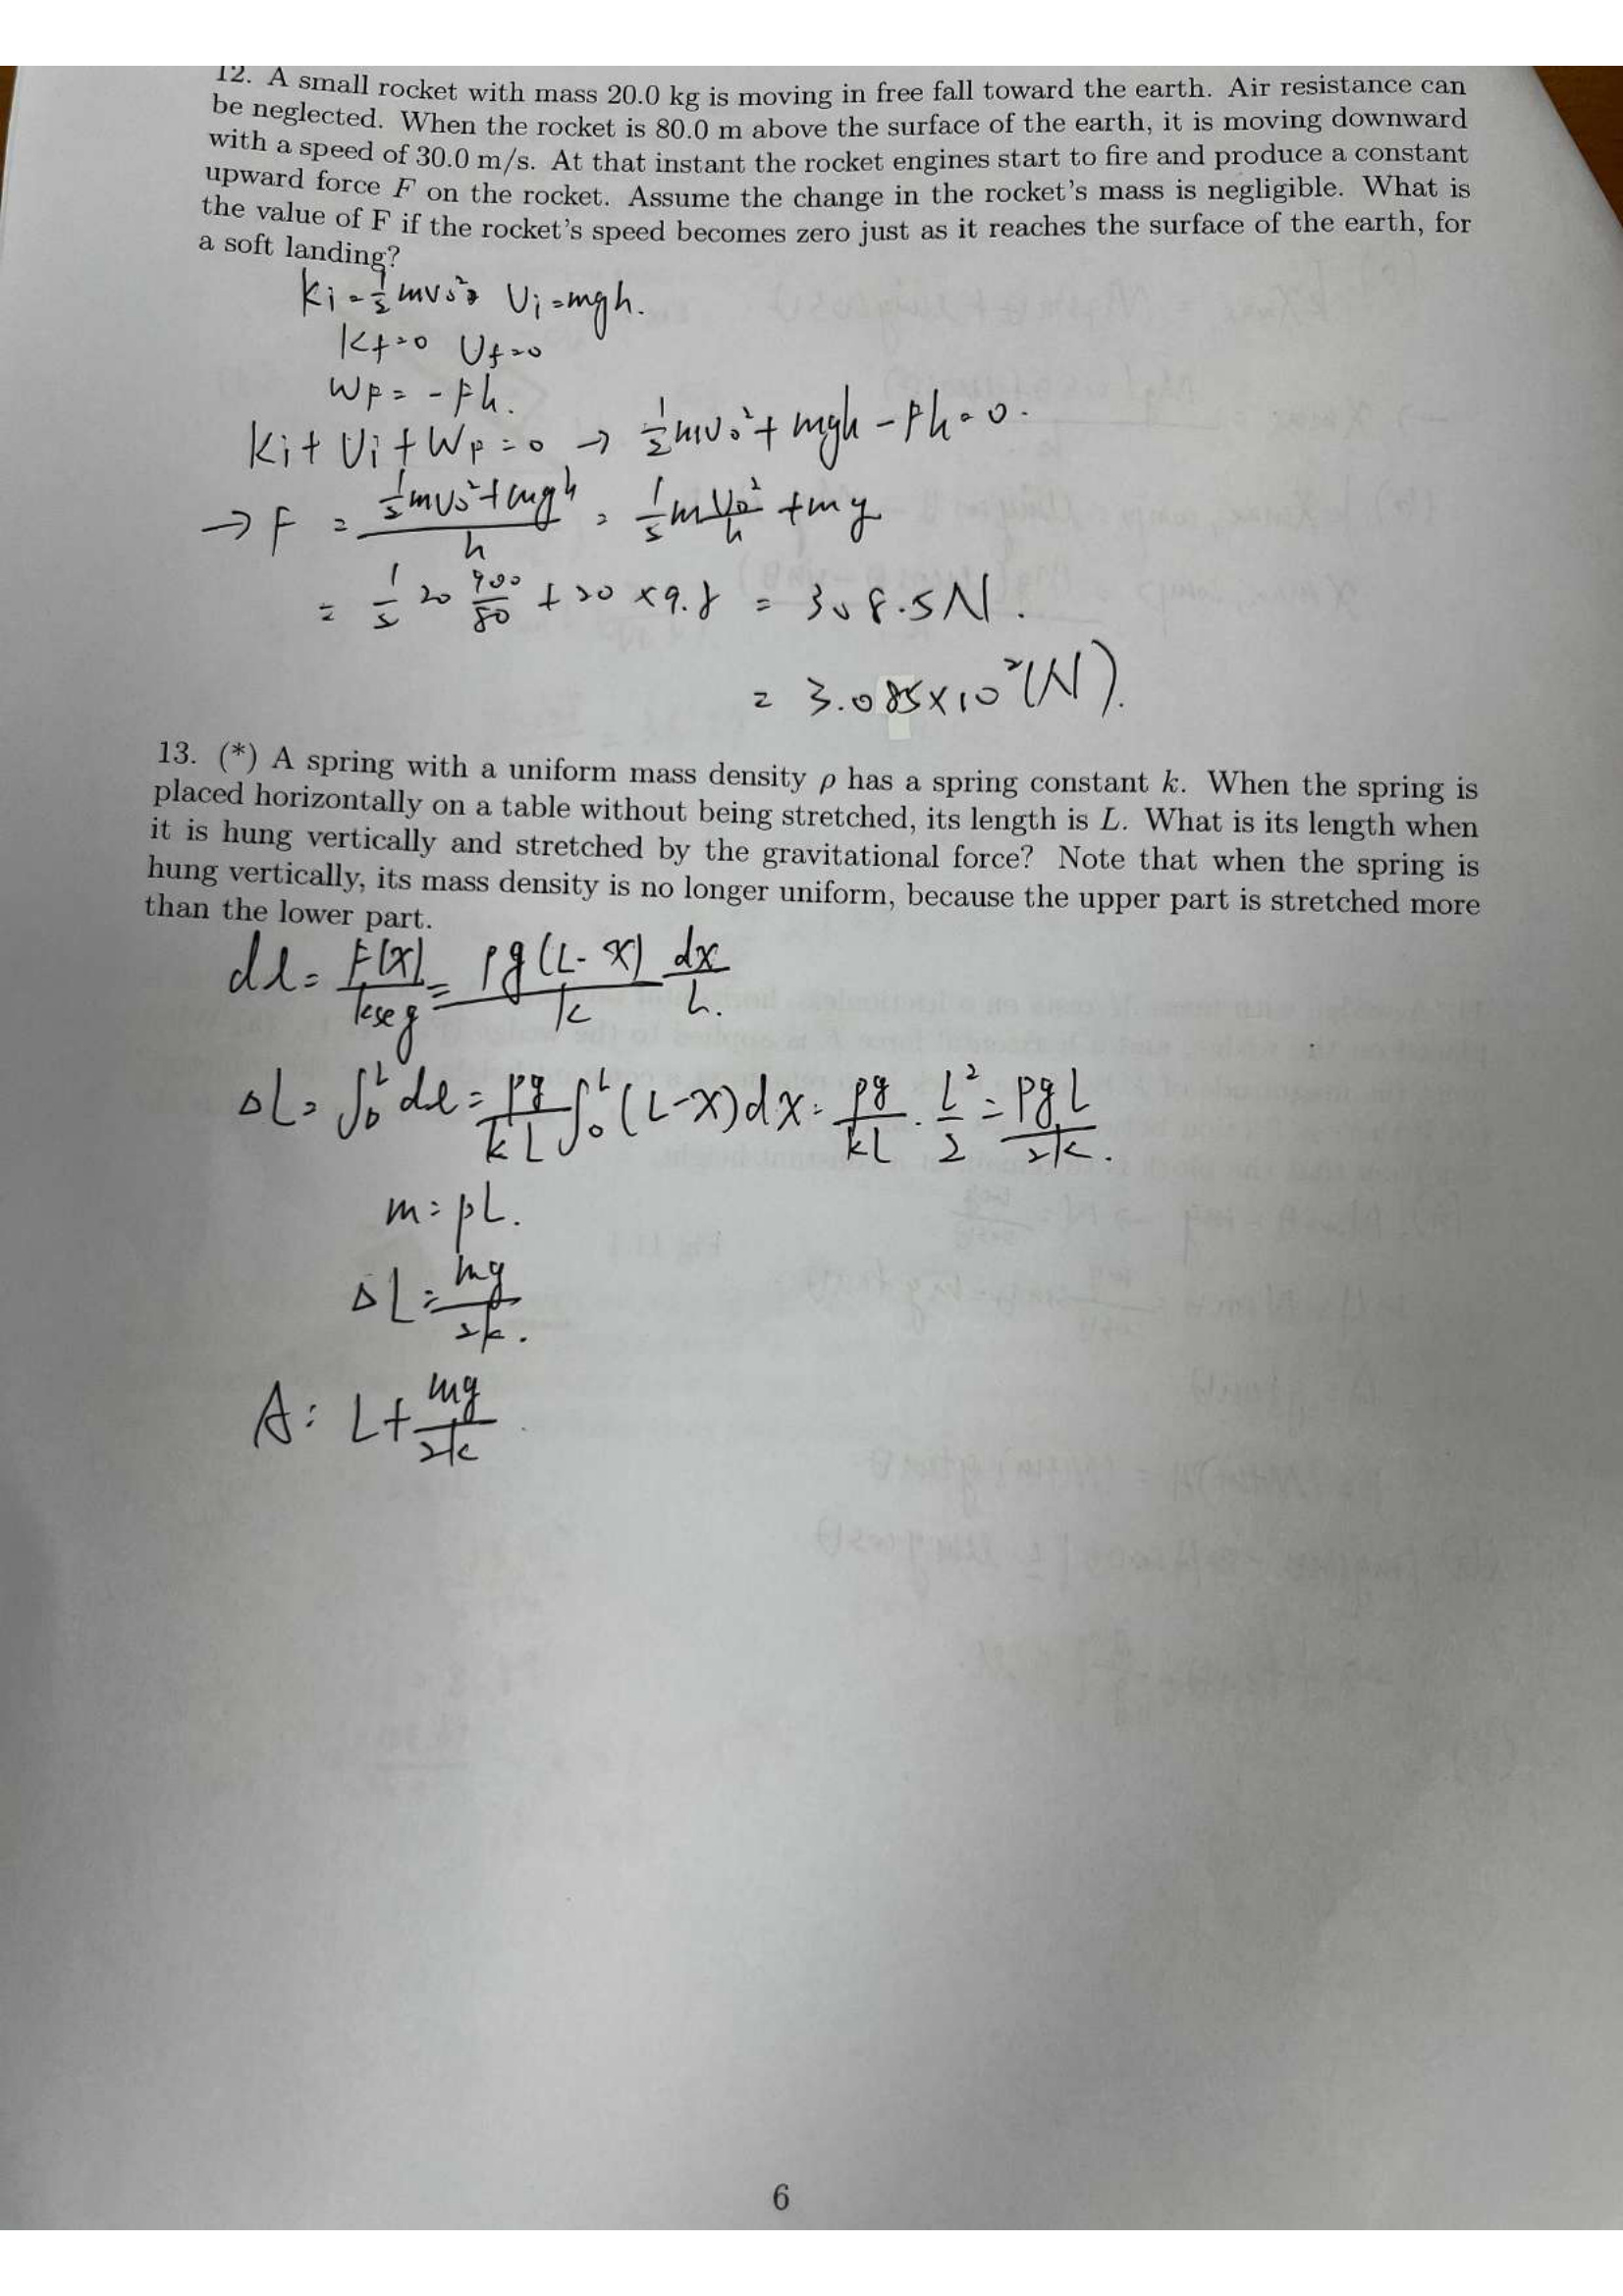 12. A small rocket with mass 20.0 kg is moving in free fall toward the earth. Air resistance can
be neglected. When the rocket is 80.0 m above the surface of the earth, it is moving downward
with a speed of 30.0 m/s. At that instant the rocket engines start to fire and produce a constant
upward force F on the rocket. Assume the change in the rocket's mass is negligible. What is
the value of F if the rocket's speed becomes zero just as it reaches the surface of the earth, for
a soft landing?
Ki = 1/2 mv0² Ui = mgh.
Kf = 0 Uf = 0
WF = -Fh.
Ki + Ui + WF = 0 → 1/2 mv0² + mgh - Fh = 0.
→ F = (1/2 mv0² + mgh)/h = 1/2 m v0²/h + mg
= 1/2 20 900/80 + 20 × 9.8 = 308.5 N.
= 3.085 × 10² (N).
13. (*) A spring with a uniform mass density ρ has a spring constant k. When the spring is
placed horizontally on a table without being stretched, its length is L. What is its length when
it is hung vertically and stretched by the gravitational force? Note that when the spring is
hung vertically, its mass density is no longer uniform, because the upper part is stretched more
than the lower part.
dl = F(x)/kseg = ρg(L-x)/k dx/L.
ΔL = ∫₀ᴸ dl = ρg/kL ∫₀ᴸ (L-x)dx = ρg/kL · L²/2 = ρgL/2k.
m = ρL.
ΔL = mg/2k.
A: L + mg/2k
6